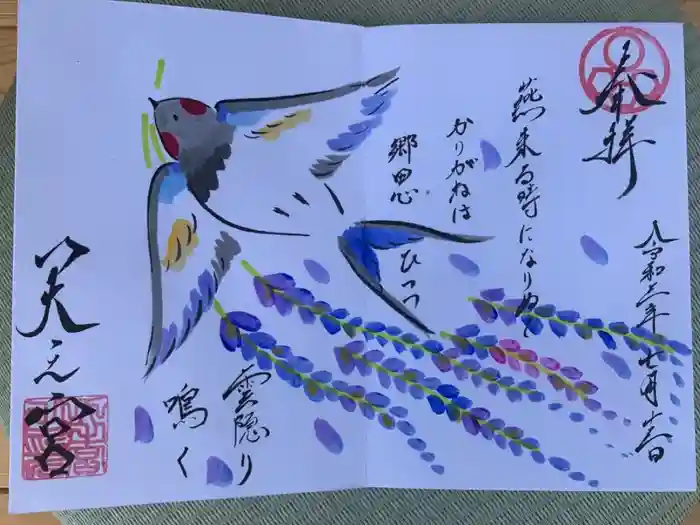 奉拝
令和三年七月
燕来る時になりぬと
かりがねは
郷思ひつつ
雲隠り
鳴く